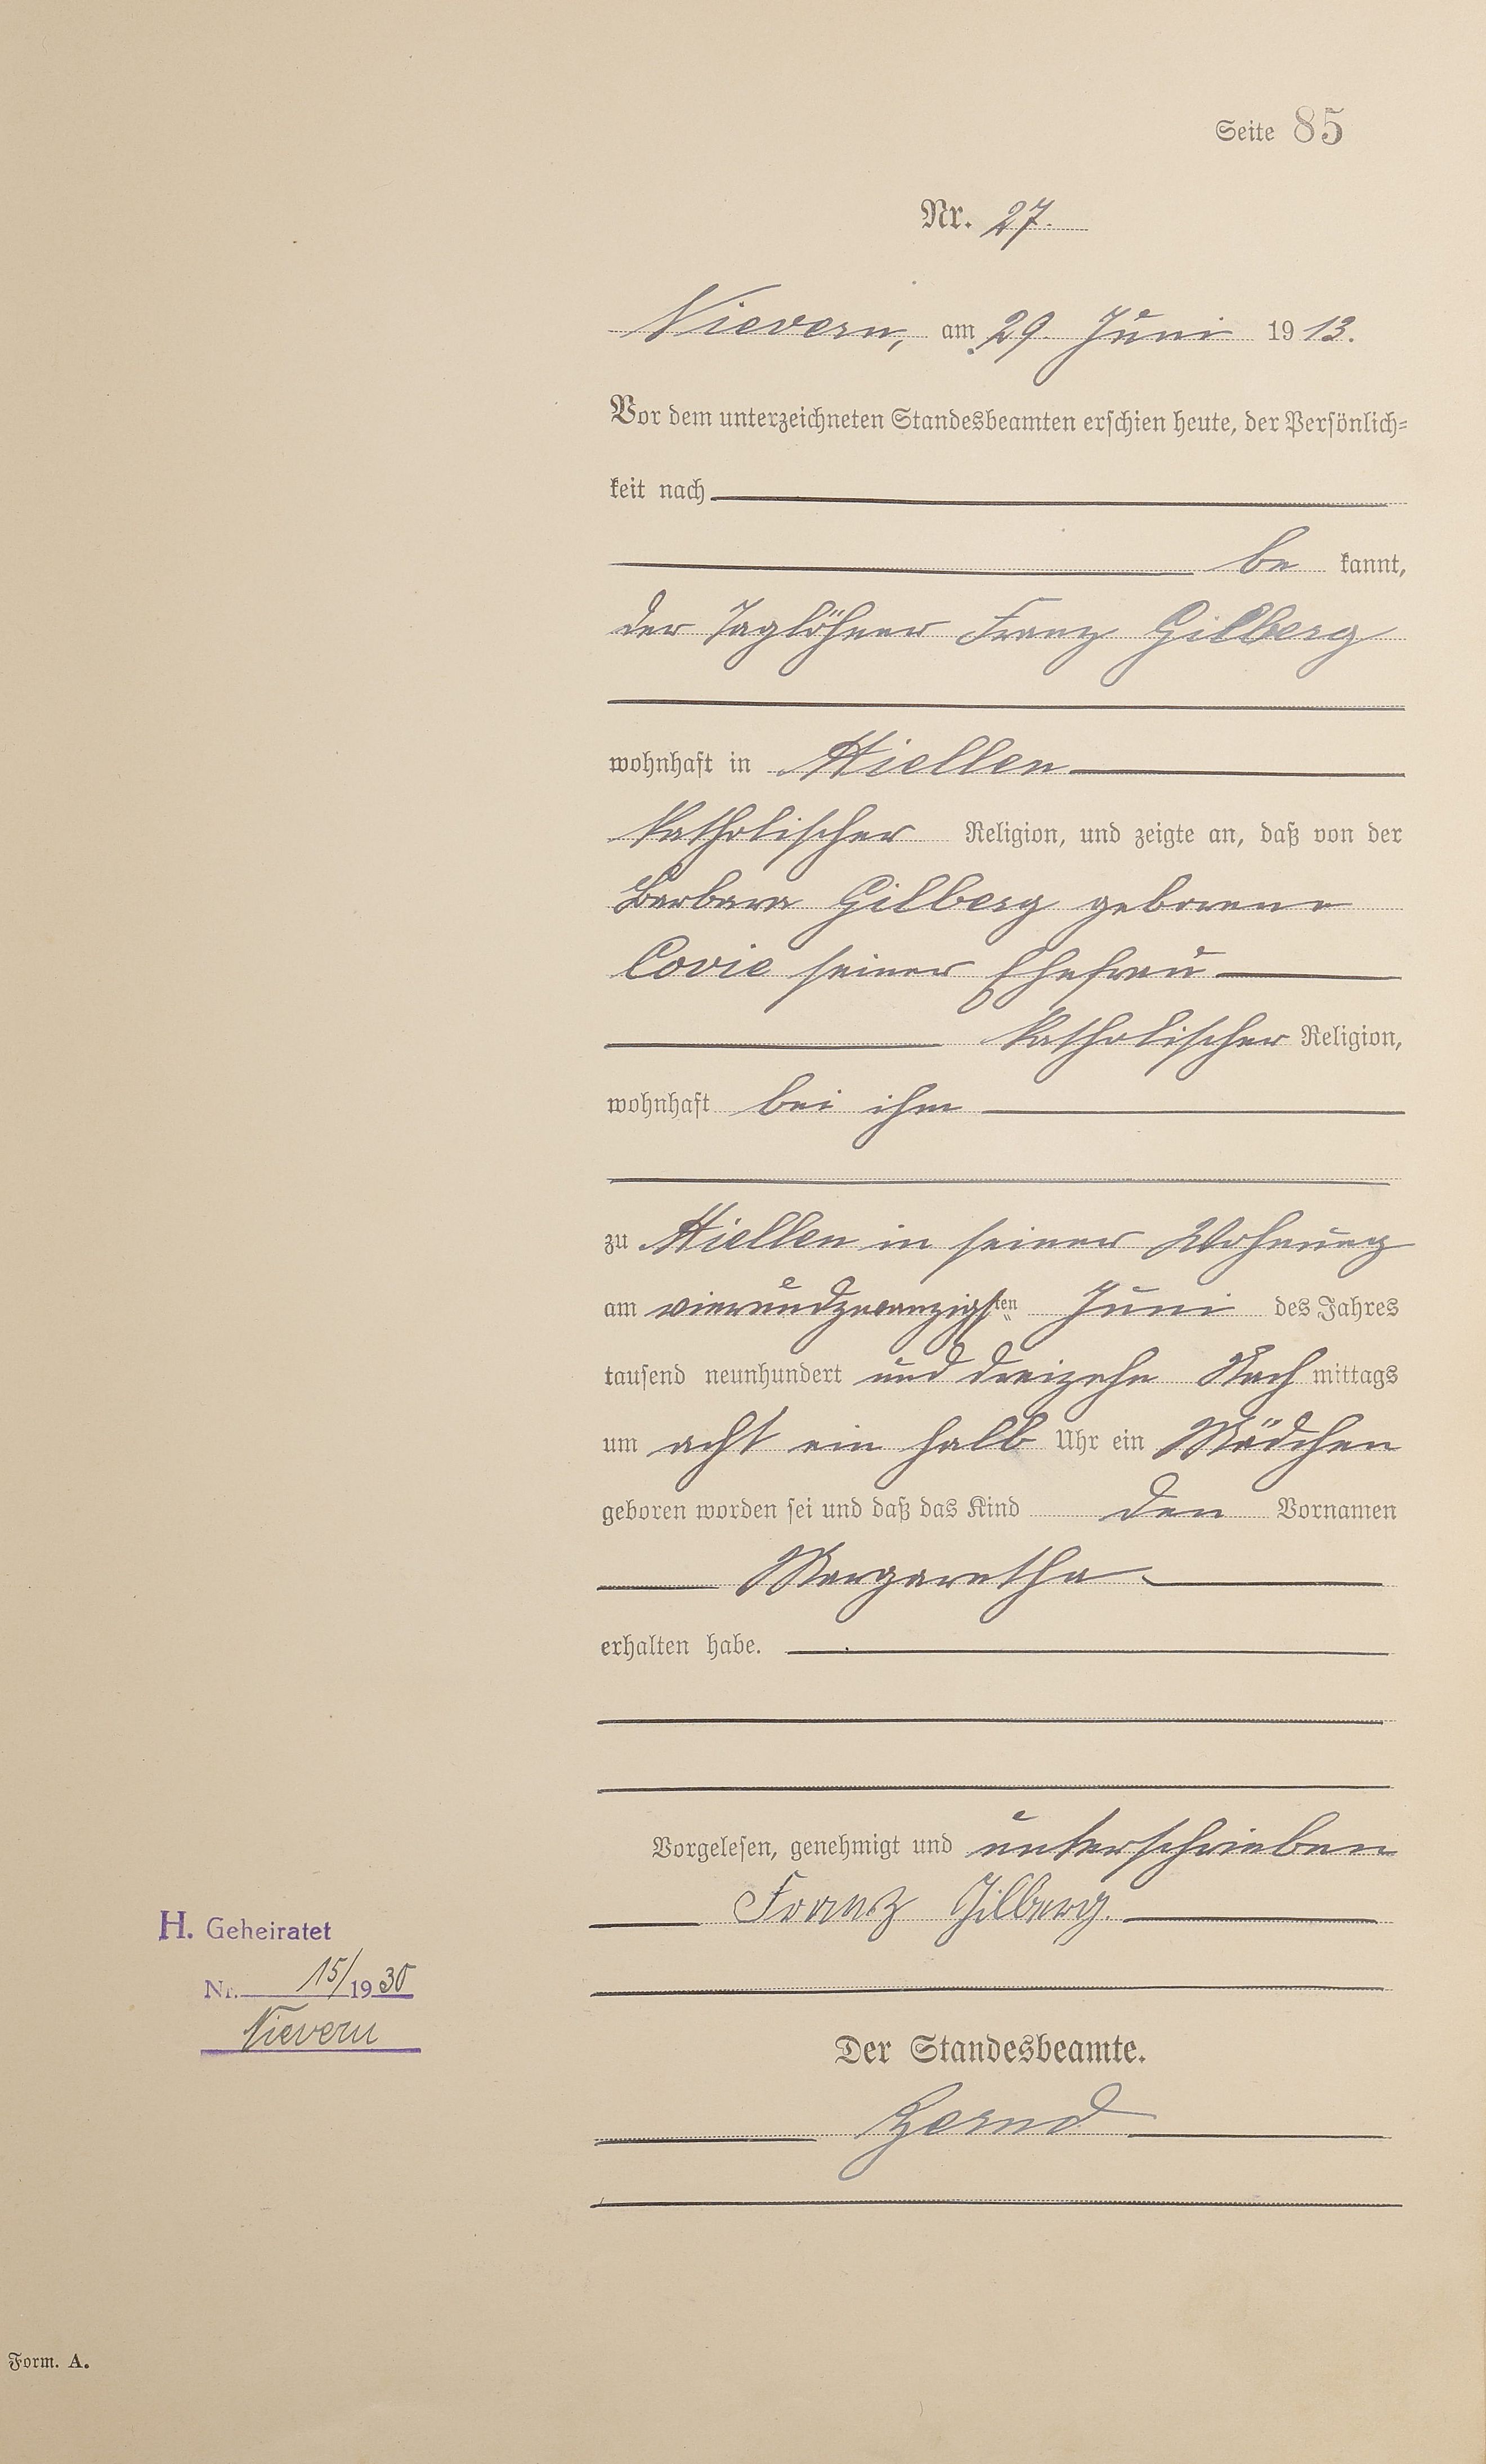 Seite 85
Nr. 27.
Nievern, am 29. Juni 1913.
Vor dem unterzeichneten Standesbeamten erschien heute, der Persönlich-
keit nach
be kannt,
der Taglöhner Franz Gilberg
wohnhaft in Miellen
katholischer Religion, und zeigte an, daß von der
Barbara Gilberg geborene
Covie seiner Ehefrau
katholischer Religion,
wohnhaft bei ihm
zu Miellen in seiner Wohnung
am vierundzwanzigsten Juni des Jahres
tausend neunhundert und dreizehn Nach mittags
um acht ein halb Uhr ein Mädchen
geboren worden sei und daß das Kind den Vornamen
Margaretha
erhalten habe.
Vorgelesen, genehmigt und unterschrieben
Franz Gilberg.
H. Geheiratet
Nr. 15/1930
Nievern
Der Standesbeamte.
Form. A.